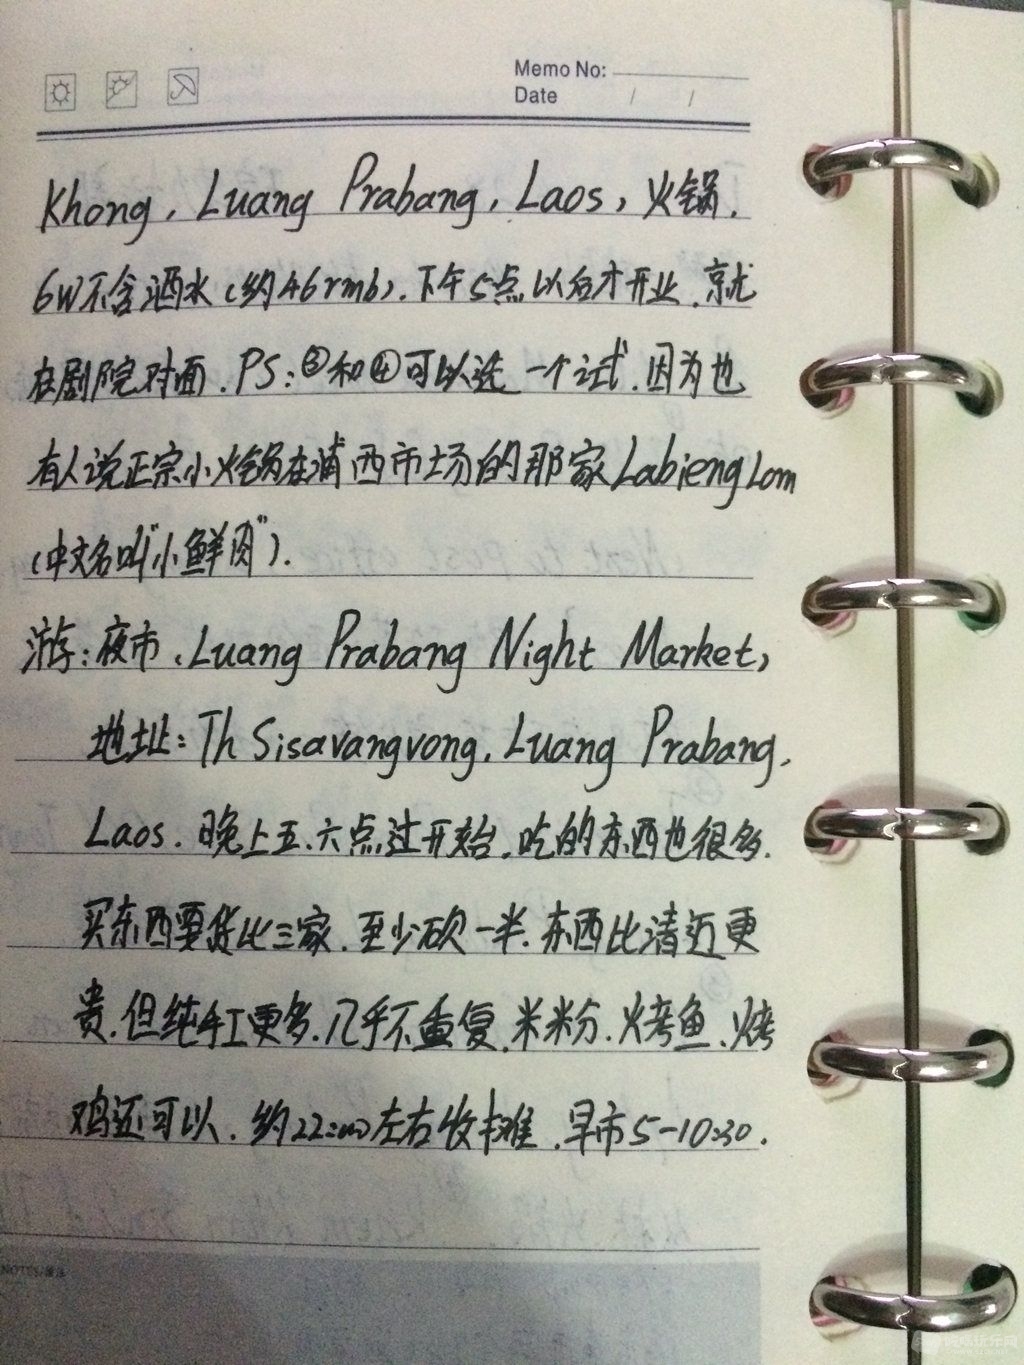 Memo No:
Date / /
Khong, Luang Prabang, Laos, 火锅,
6W不含酒水(约46rmb),下午5点以后才开业,就
在剧院对面.PS:③和④可以选一个试,因为也
有人说正宗小火锅在浦西市场的那家Labieng Lom
(中文名叫“小鲜肉”).
游:夜市,Luang Prabang Night Market,
地址:Th Sisavangvong, Luang Prabang,
Laos.晚上五、六点过开始,吃的东西也很多.
买东西要货比三家,至少砍一半.东西比清迈更
贵,但纯手工更多,几乎不重复.米粉.烤鱼、烤
鸡还可以.约22:00左右收摊.早市5-10:30.
NOTES/备注